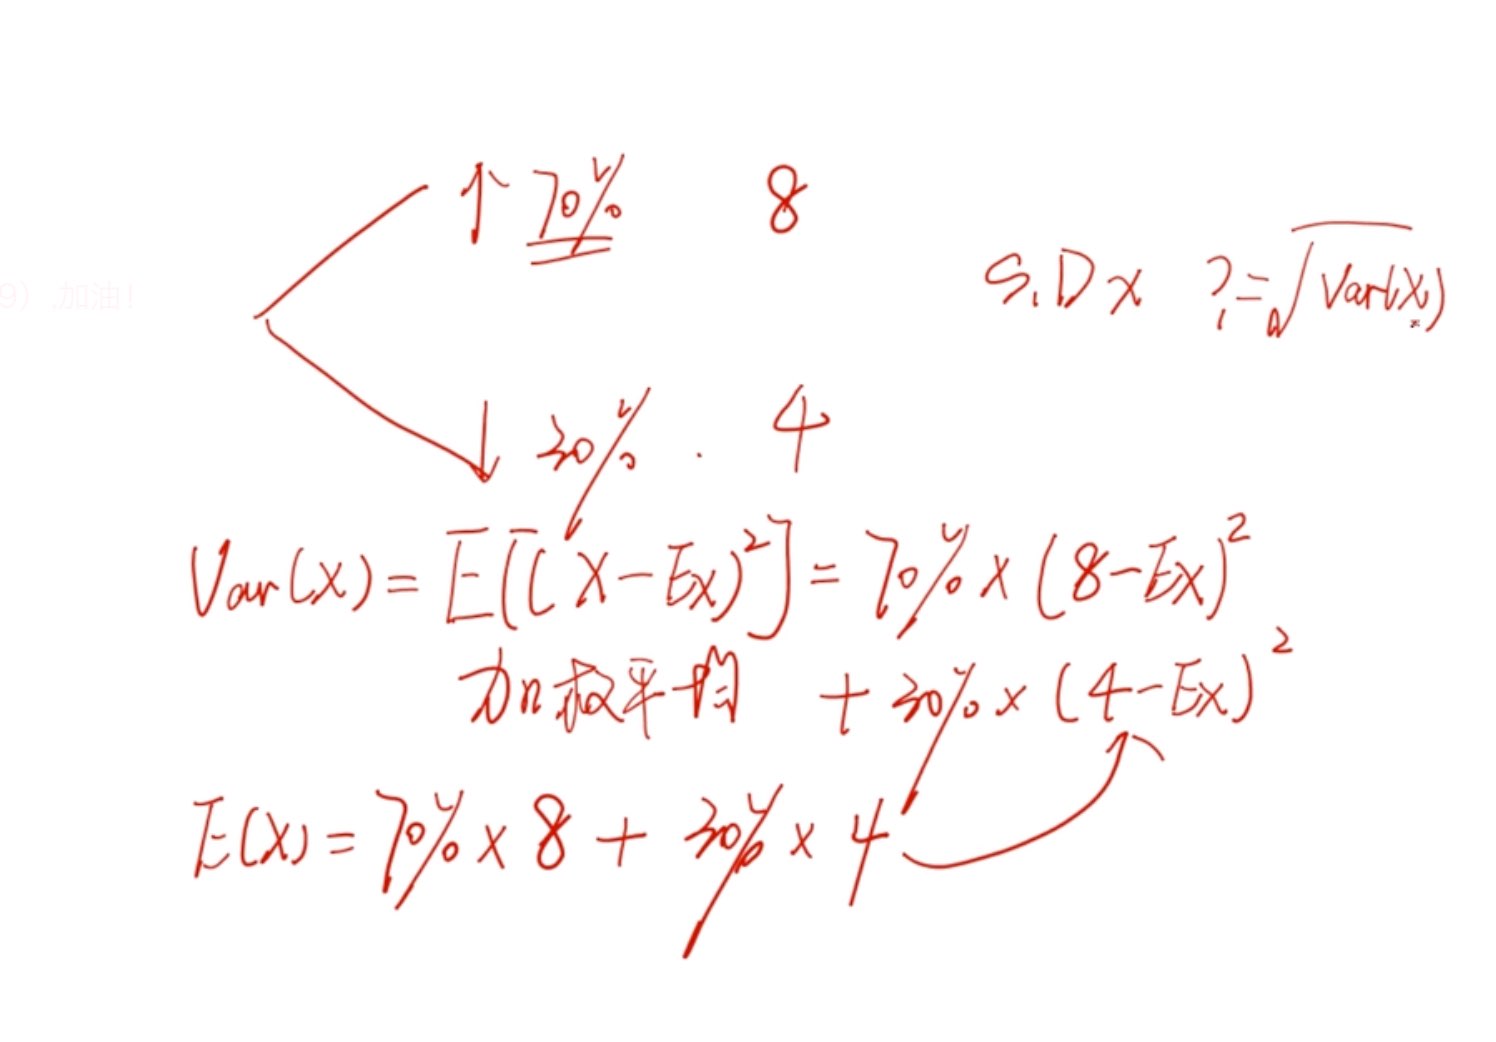 ↑ 70% 8
9）.加油！
S.D x ?=√Var(X)
↓ 30% . 4
Var(X) = E[(X-EX)²] = 70% × (8-EX)²
加权平均 + 30% × (4-EX)²
E(X) = 70% × 8 + 30% × 4